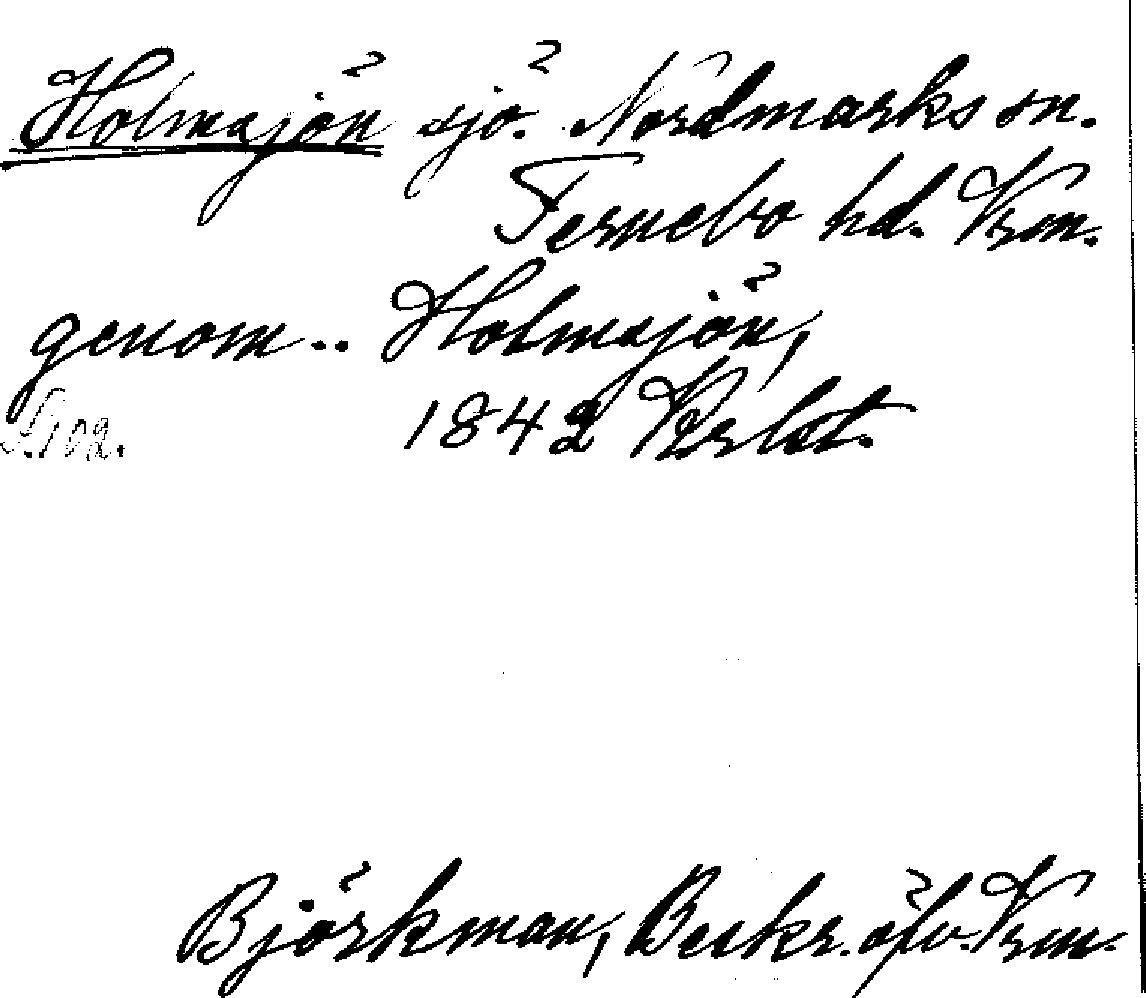 Holmsjön sjö. Nordmarks sn.
Fernebo hd. Vrm.
genom.. Holmsjön,
S. 102. 1842 Krlst.
Björkman, Beskr. öfv. Vrm.